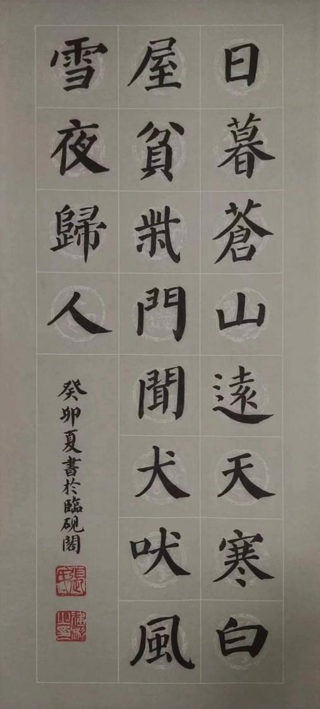 日暮蒼山遠天寒白
屋貧柴門聞犬吠風
雪夜歸人
癸卯夏書於臨硯閣